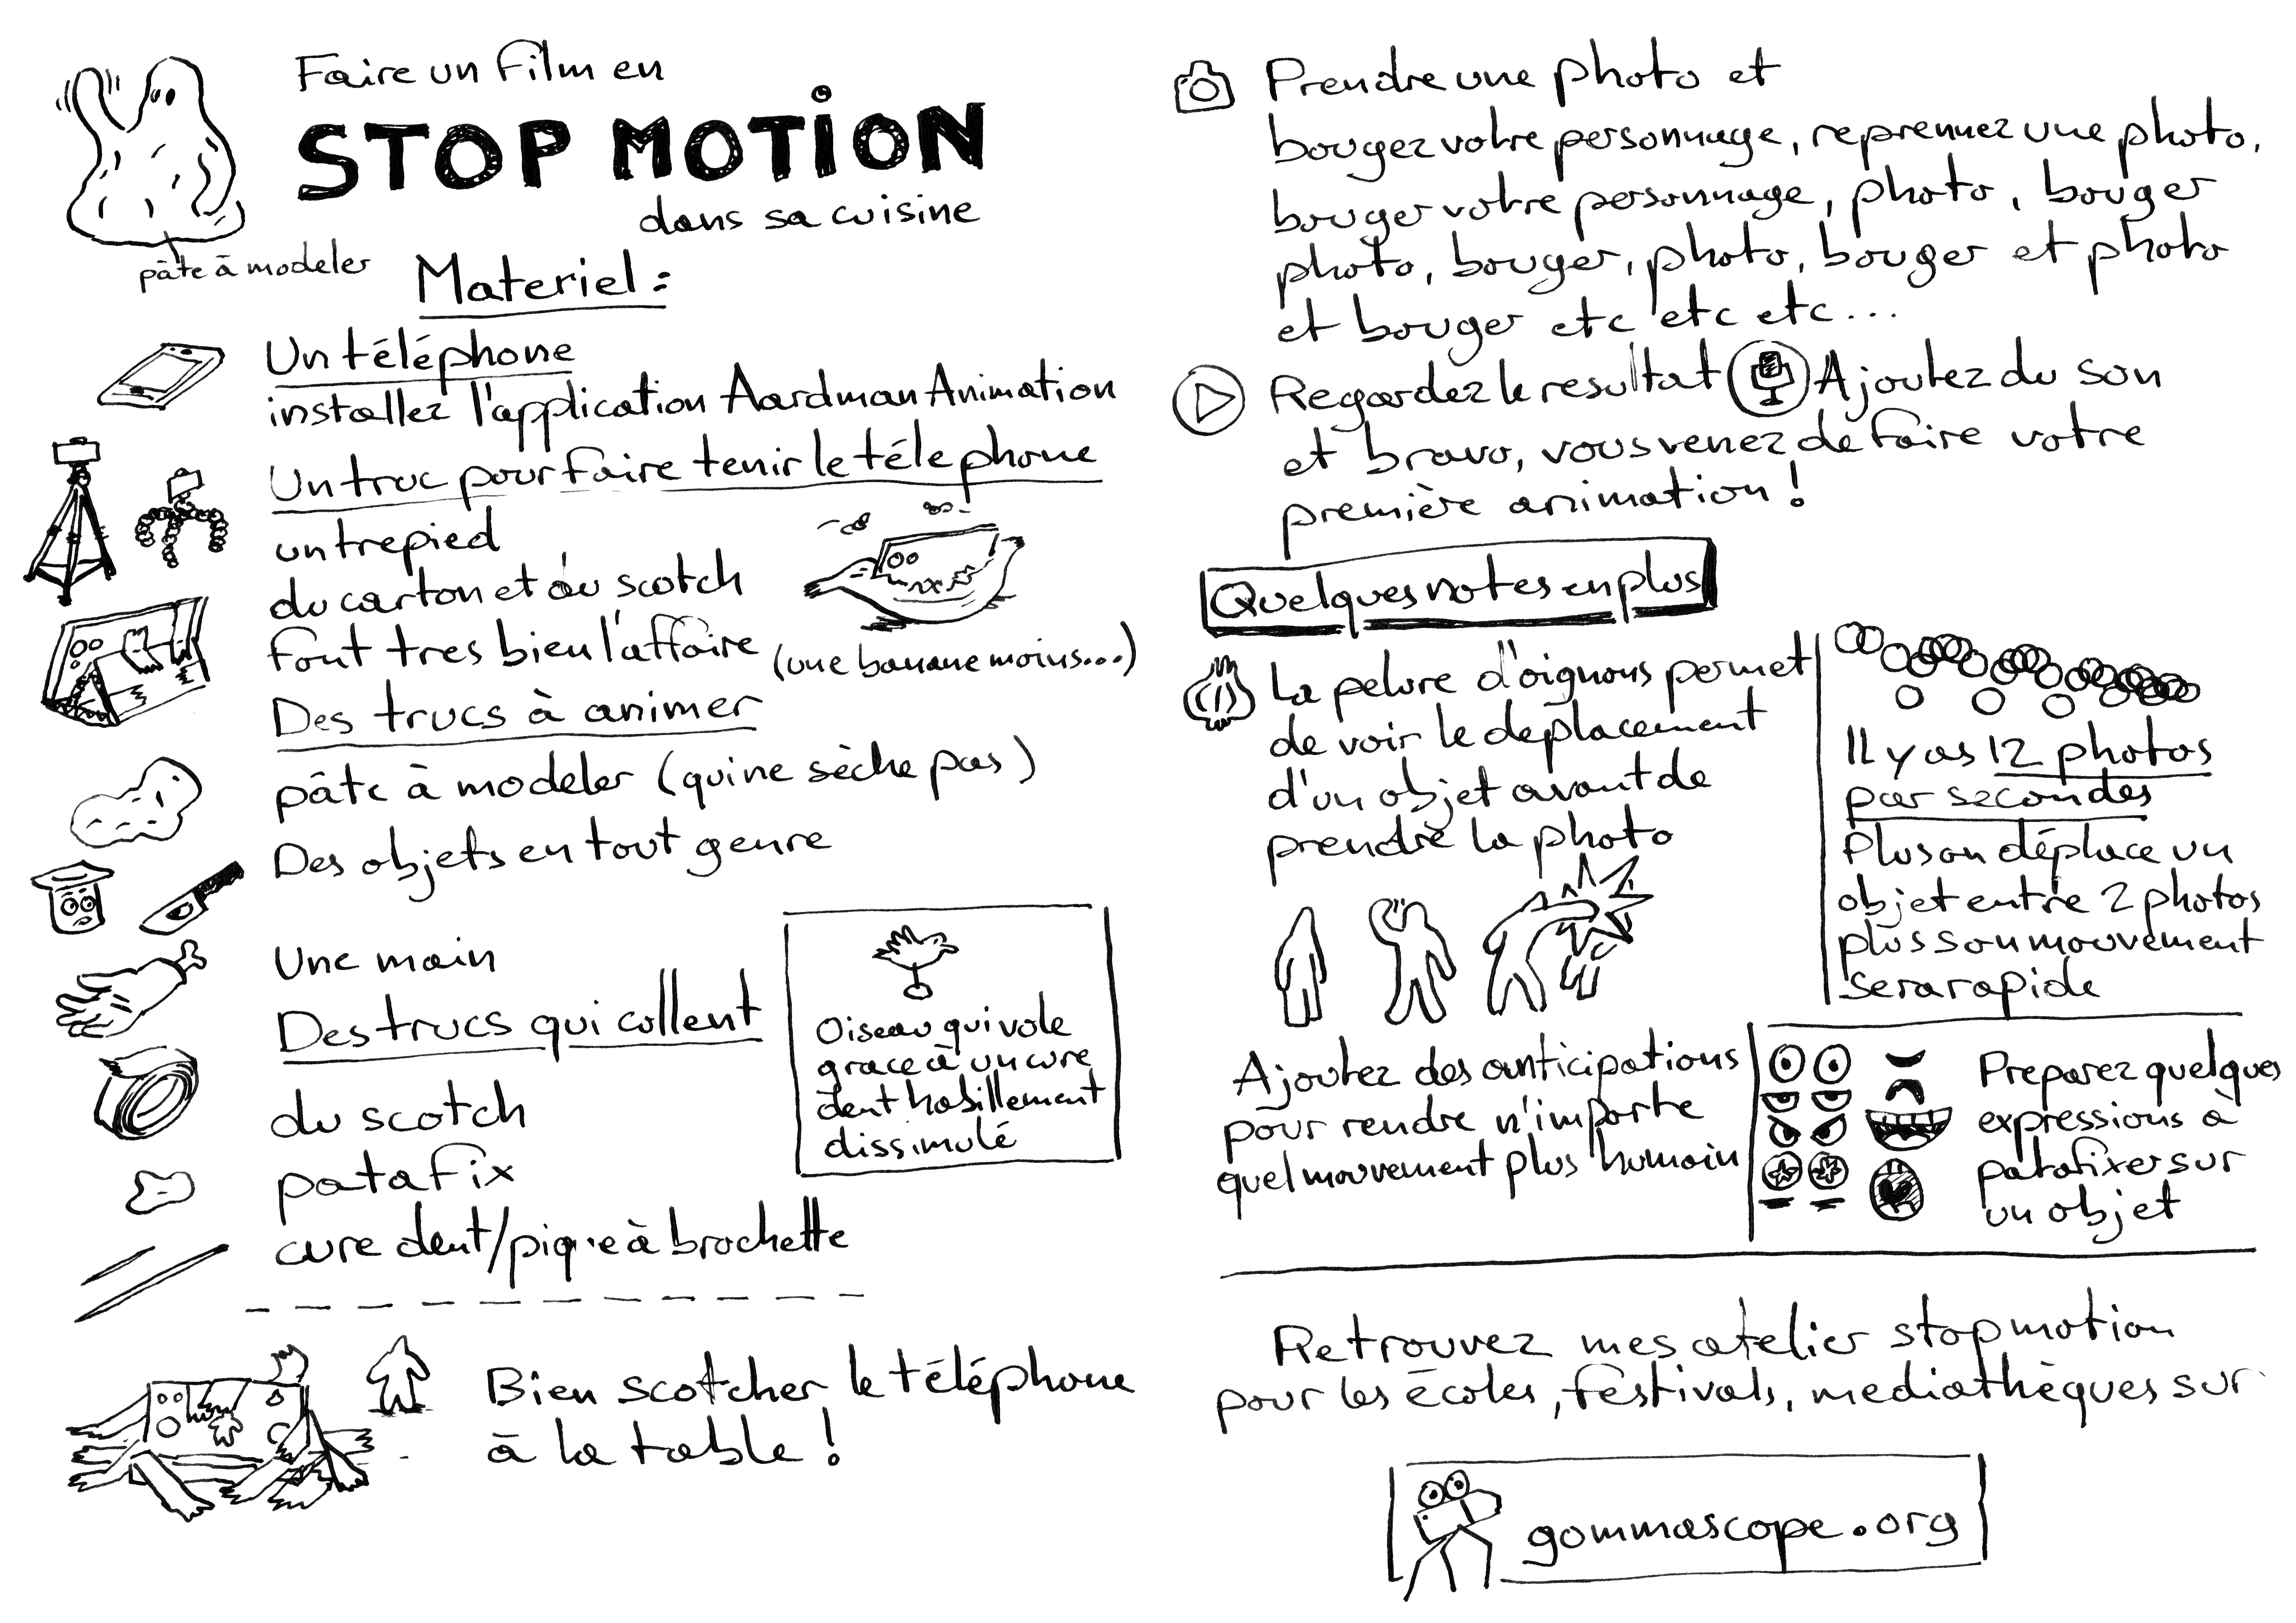 Faire un film en
STOP MOTION
dans sa cuisine
pâte à modeler
Materiel :
Un téléphone
installez l'application Aardman Animation
Un truc pour faire tenir le télephone
un trepied
du carton et du scotch
font tres bien l'affaire (une banane moins...)
Des trucs à animer
pâte à modeler (qui ne sèche pas)
Des objets en tout genre
Une main
Des trucs qui collent
du scotch
patafix
cure dent/pique à brochette
Oiseau qui vole
grace à un cure
dent habillement
dissimulé
Bien scotcher le téléphone
à la table !
Prendre une photo et
bougez votre personnage, reprennez une photo,
bouger votre personnage, photo, bouger
photo, bouger, photo, bouger et photo
et bouger etc etc etc...
Regardez le resultat Ajoutez du son
et bravo, vous venez de faire votre
première animation !
Quelques notes en plus
La pelure d'oignons permet
de voir le deplacement
d'un objet avant de
prendre la photo
Il y as 12 photos
par secondes
Plus on déplace un
objet entre 2 photos
plus son mouvement
sera rapide
Ajoutez des anticipations
pour rendre n'importe
quel mouvement plus humain
Preparez quelques
expressions à
patafixer sur
un objet
Retrouvez mes atelier stop motion
pour les écoles, festivals, mediathèques sur
gommascope.org